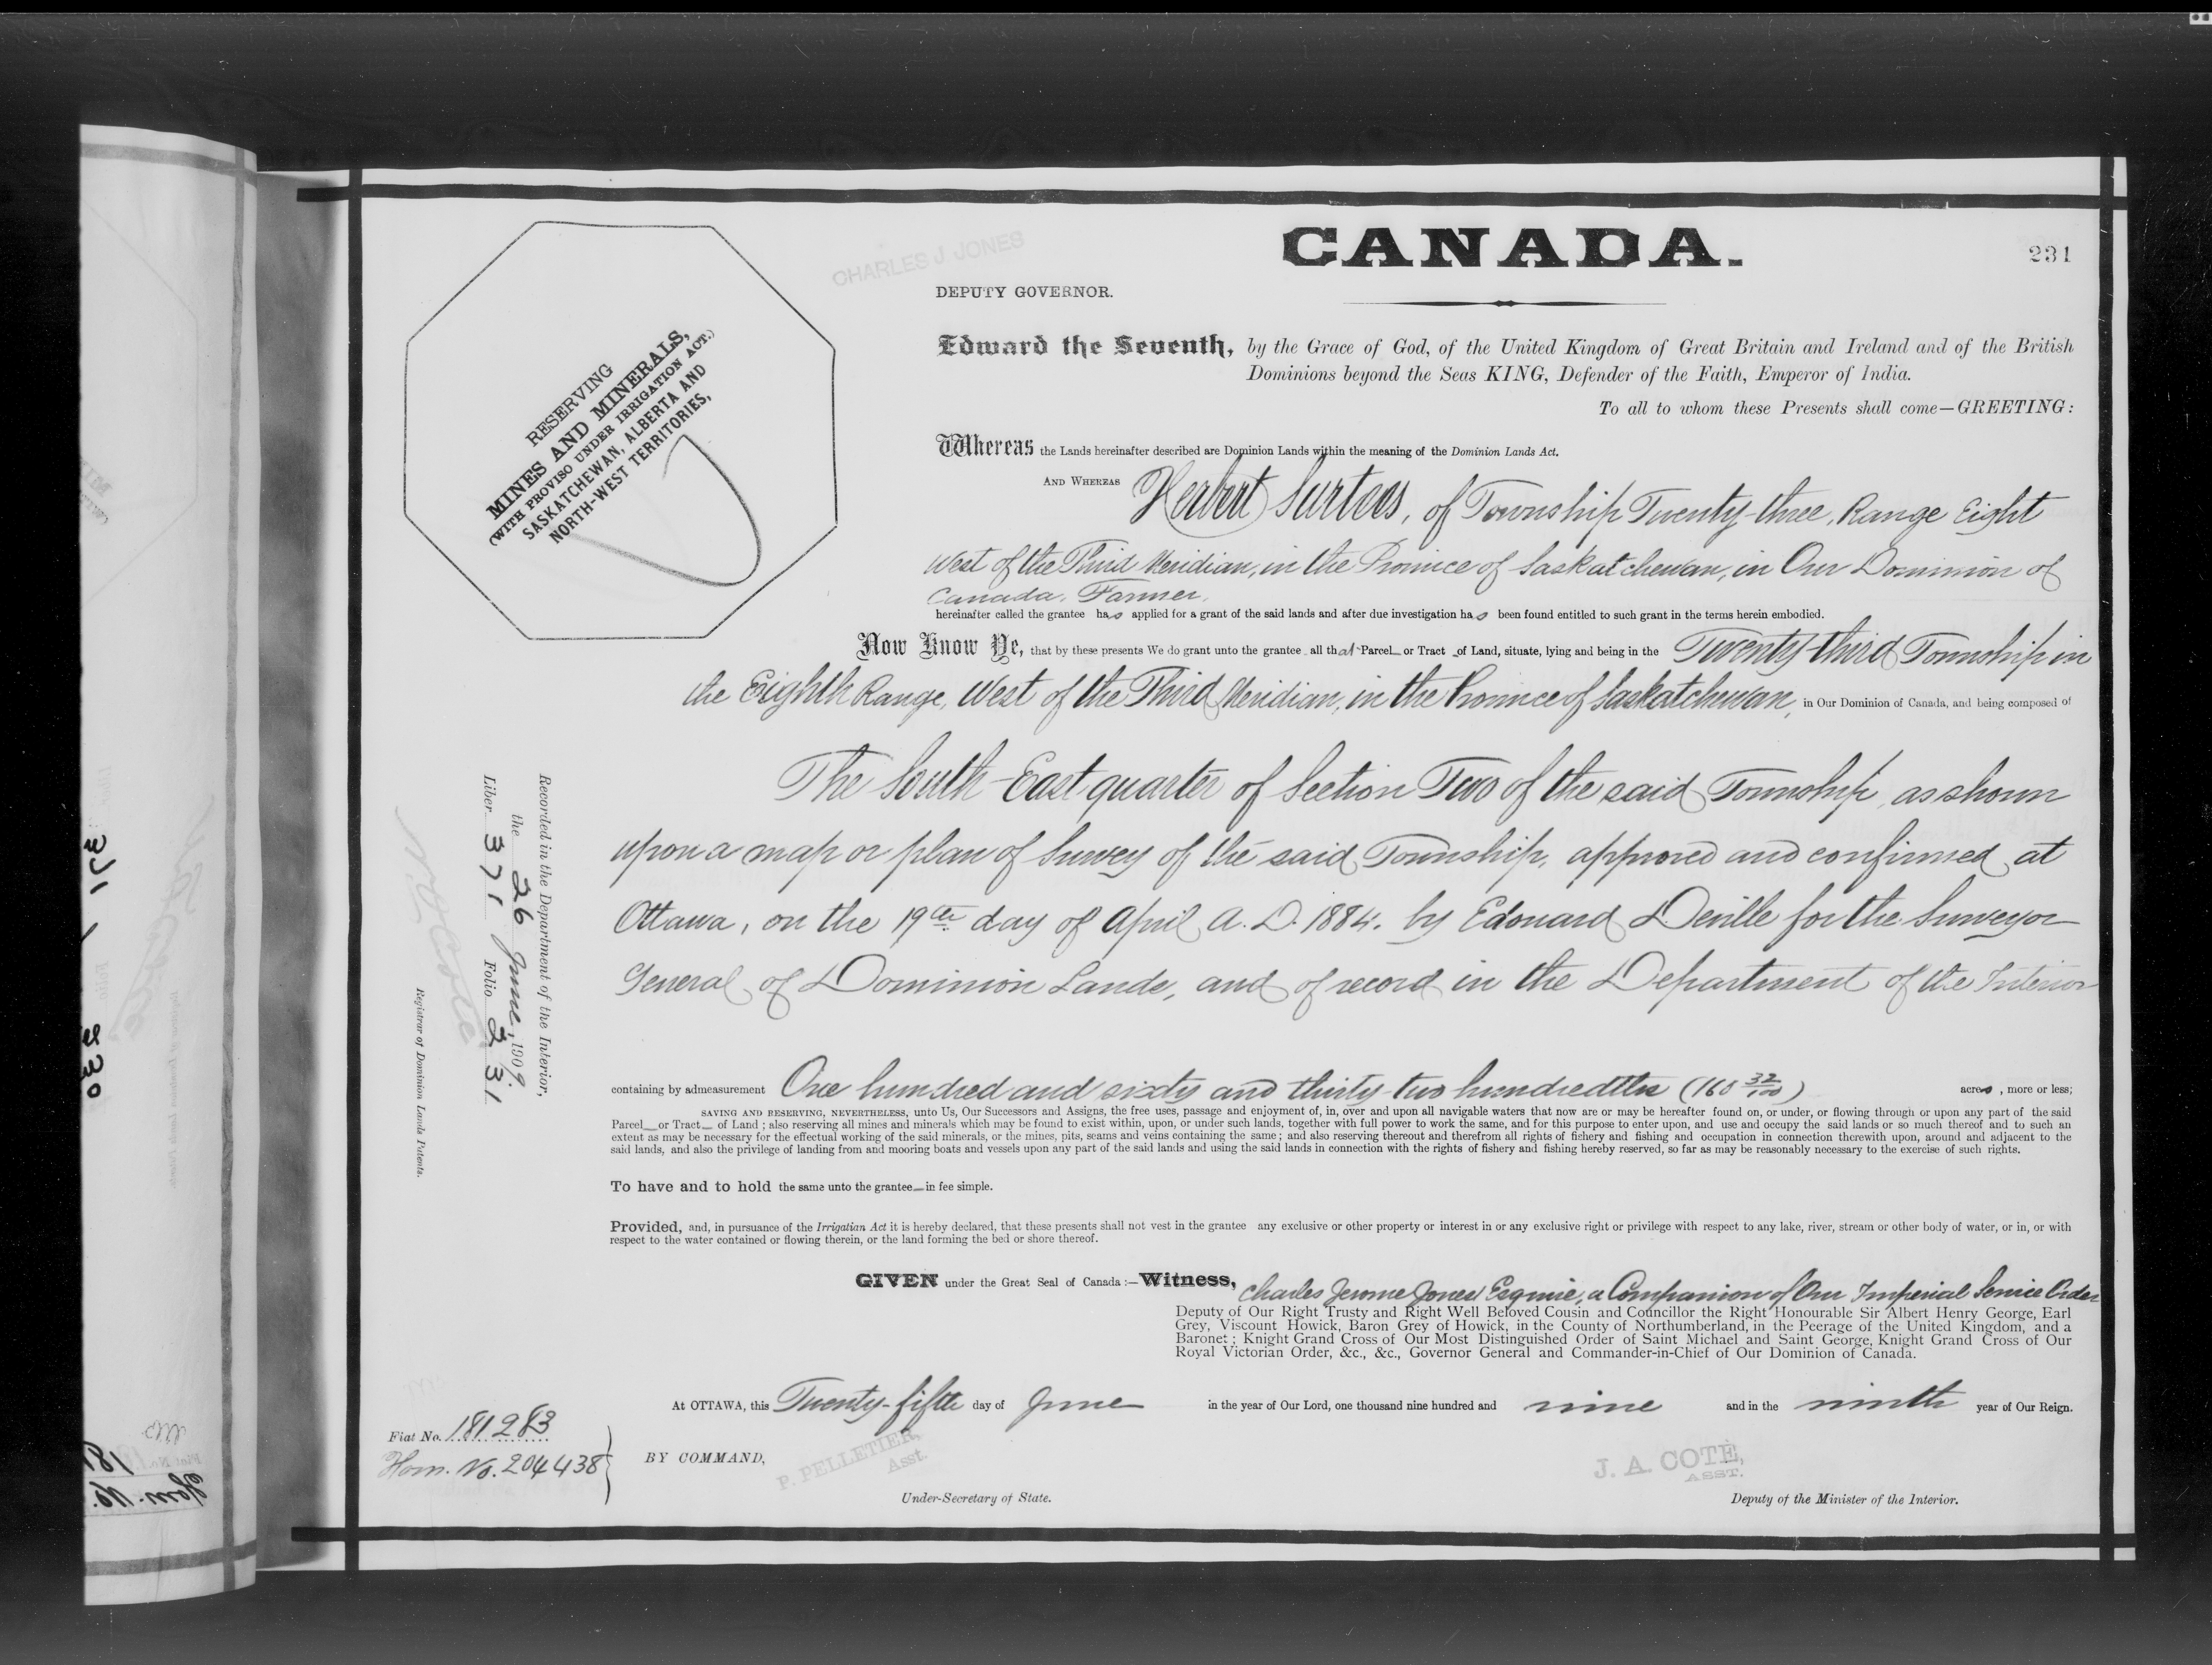 CHARLES J. JONES
CANADA.
231
DEPUTY GOVERNOR.
RESERVING
MINES AND MINERALS,
(WITH PROVISO UNDER IRRIGATION ACT.)
SASKATCHEWAN, ALBERTA AND
NORTH-WEST TERRITORIES,
Edward the Seventh, by the Grace of God, of the United Kingdom of Great Britain and Ireland and of the British
Dominions beyond the Seas KING, Defender of the Faith, Emperor of India.
To all to whom these Presents shall come—GREETING:
Whereas the Lands hereinafter described are Dominion Lands within the meaning of the Dominion Lands Act.
AND WHEREAS Herbert Surtees, of Township Twenty-three, Range Eight
West of the Third Meridian, in the Province of Saskatchewan, in Our Dominion of
Canada, Farmer,
hereinafter called the grantee has applied for a grant of the said lands and after due investigation has been found entitled to such grant in the terms herein embodied.
Now Know Ye, that by these presents We do grant unto the grantee all that Parcel or Tract of Land, situate, lying and being in the Twenty-third Township in
the Eighth Range, West of the Third Meridian, in the Province of Saskatchewan, in Our Dominion of Canada, and being composed of
The South-East quarter of Section Two of the said Township, as shown
upon a map or plan of Survey of the said Township, approved and confirmed at
Ottawa, on the 19th day of April A.D. 1884, by Edouard Deville for the Surveyor
General of Dominion Lands, and of record in the Department of the Interior
containing by admeasurement One hundred and sixty and thirty-two hundredths (160 32/100) acres, more or less;
SAVING AND RESERVING, NEVERTHELESS, unto Us, Our Successors and Assigns, the free uses, passage and enjoyment of, in, over and upon all navigable waters that now are or may be hereafter found on, or under, or flowing through or upon any part of the said
Parcel or Tract of Land; also reserving all mines and minerals which may be found to exist within, upon, or under such lands, together with full power to work the same, and for this purpose to enter upon, and use and occupy the said lands or so much thereof and to such an
extent as may be necessary for the effectual working of the said minerals, or the mines, pits, seams and veins containing the same; and also reserving thereout and therefrom all rights of fishery and fishing and occupation in connection therewith upon, around and adjacent to the
said lands, and also the privilege of landing from and mooring boats and vessels upon any part of the said lands and using the said lands in connection with the rights of fishery and fishing hereby reserved, so far as may be reasonably necessary to the exercise of such rights.
To have and to hold the same unto the grantee in fee simple.
Provided, and, in pursuance of the Irrigatian Act it is hereby declared, that these presents shall not vest in the grantee any exclusive or other property or interest in or any exclusive right or privilege with respect to any lake, river, stream or other body of water, or in, or with
respect to the water contained or flowing therein, or the land forming the bed or shore thereof.
GIVEN under the Great Seal of Canada:—Witness, Charles Jerome Jones Esquire, a Companion of Our Imperial Service Order
Deputy of Our Right Trusty and Right Well Beloved Cousin and Councillor the Right Honourable Sir Albert Henry George, Earl
Grey, Viscount Howick, Baron Grey of Howick, in the County of Northumberland, in the Peerage of the United Kingdom, and a
Baronet; Knight Grand Cross of Our Most Distinguished Order of Saint Michael and Saint George, Knight Grand Cross of Our
Royal Victorian Order, &c., &c., Governor General and Commander-in-Chief of Our Dominion of Canada.
At OTTAWA, this Twenty-fifth day of June in the year of Our Lord, one thousand nine hundred and nine and in the ninth year of Our Reign.
BY COMMAND,
P. PELLETIER,
Asst.
Under-Secretary of State.
J. A. COTE,
ASST.
Deputy of the Minister of the Interior.
Fiat No. 181283
Hom. No. 204438
Recorded in the Department of the Interior,
the 26 June, 1909.
Liber 371 Folio 231
N. O. Coté
Registrar of Dominion Lands Patents.